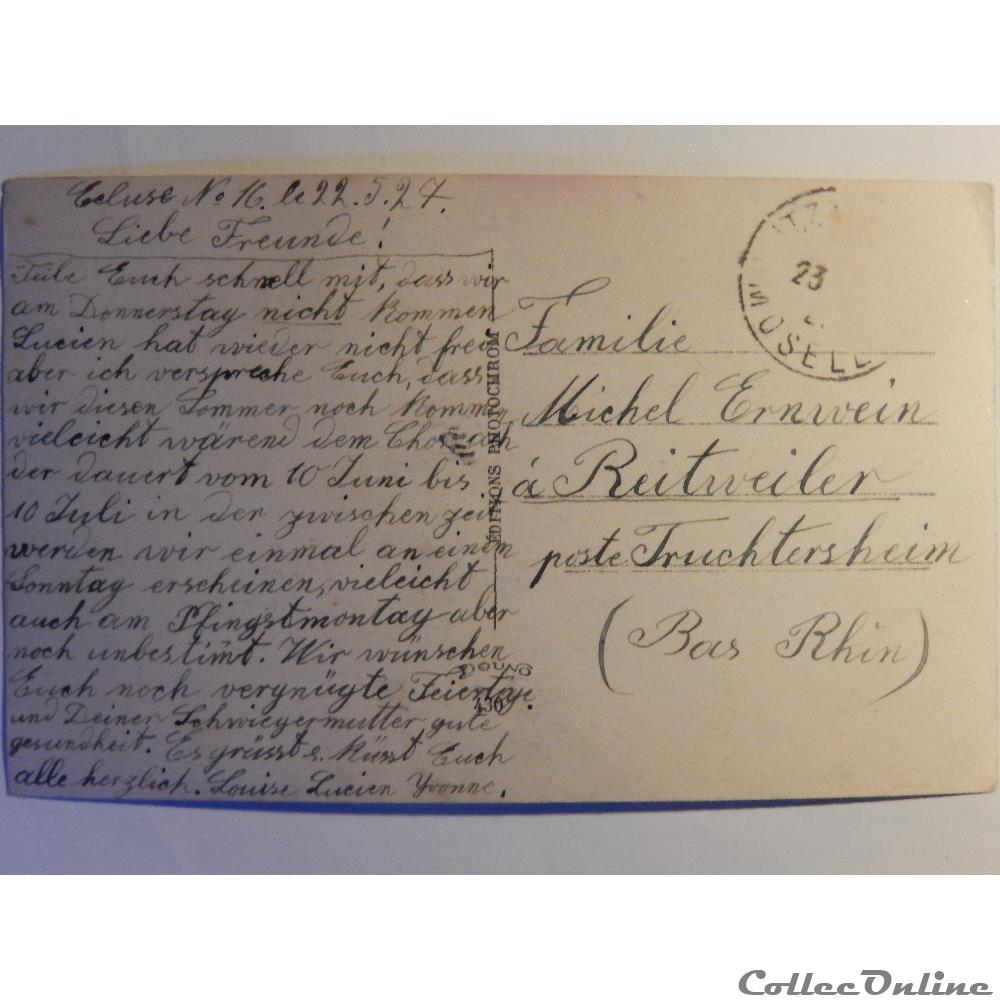 Ecluse No 16. le 22.5.27.
Liebe Freunde!
Teile Euch schnell mit, dass wir
am Donnerstag nicht kommen
Lucien hat wieder nicht frei
aber ich verspreche Euch, dass
wir diesen Sommer noch kommen
vieleicht wärend dem
der dauert vom 10 Juni bis
10 Juli in der zwischen zeit
werden wir einmal an einem
Sonntag erscheinen, vieleicht
auch am Pfingstmontag aber
noch unbestimt. Wir wünschen
Euch noch vergnügte Feiertage.
und Deiner Schwiegermutter gute
gesundheit. Es grüsst & küsst Euch
alle herzlich. Louise Lucien Yvonne.
ÉDITIONS PHOTOCHROM
430
23
MOSELL
Familie
Michel Ernwein
à Reitweiler
poste Truchtersheim
(Bas Rhin)
CollecOnline